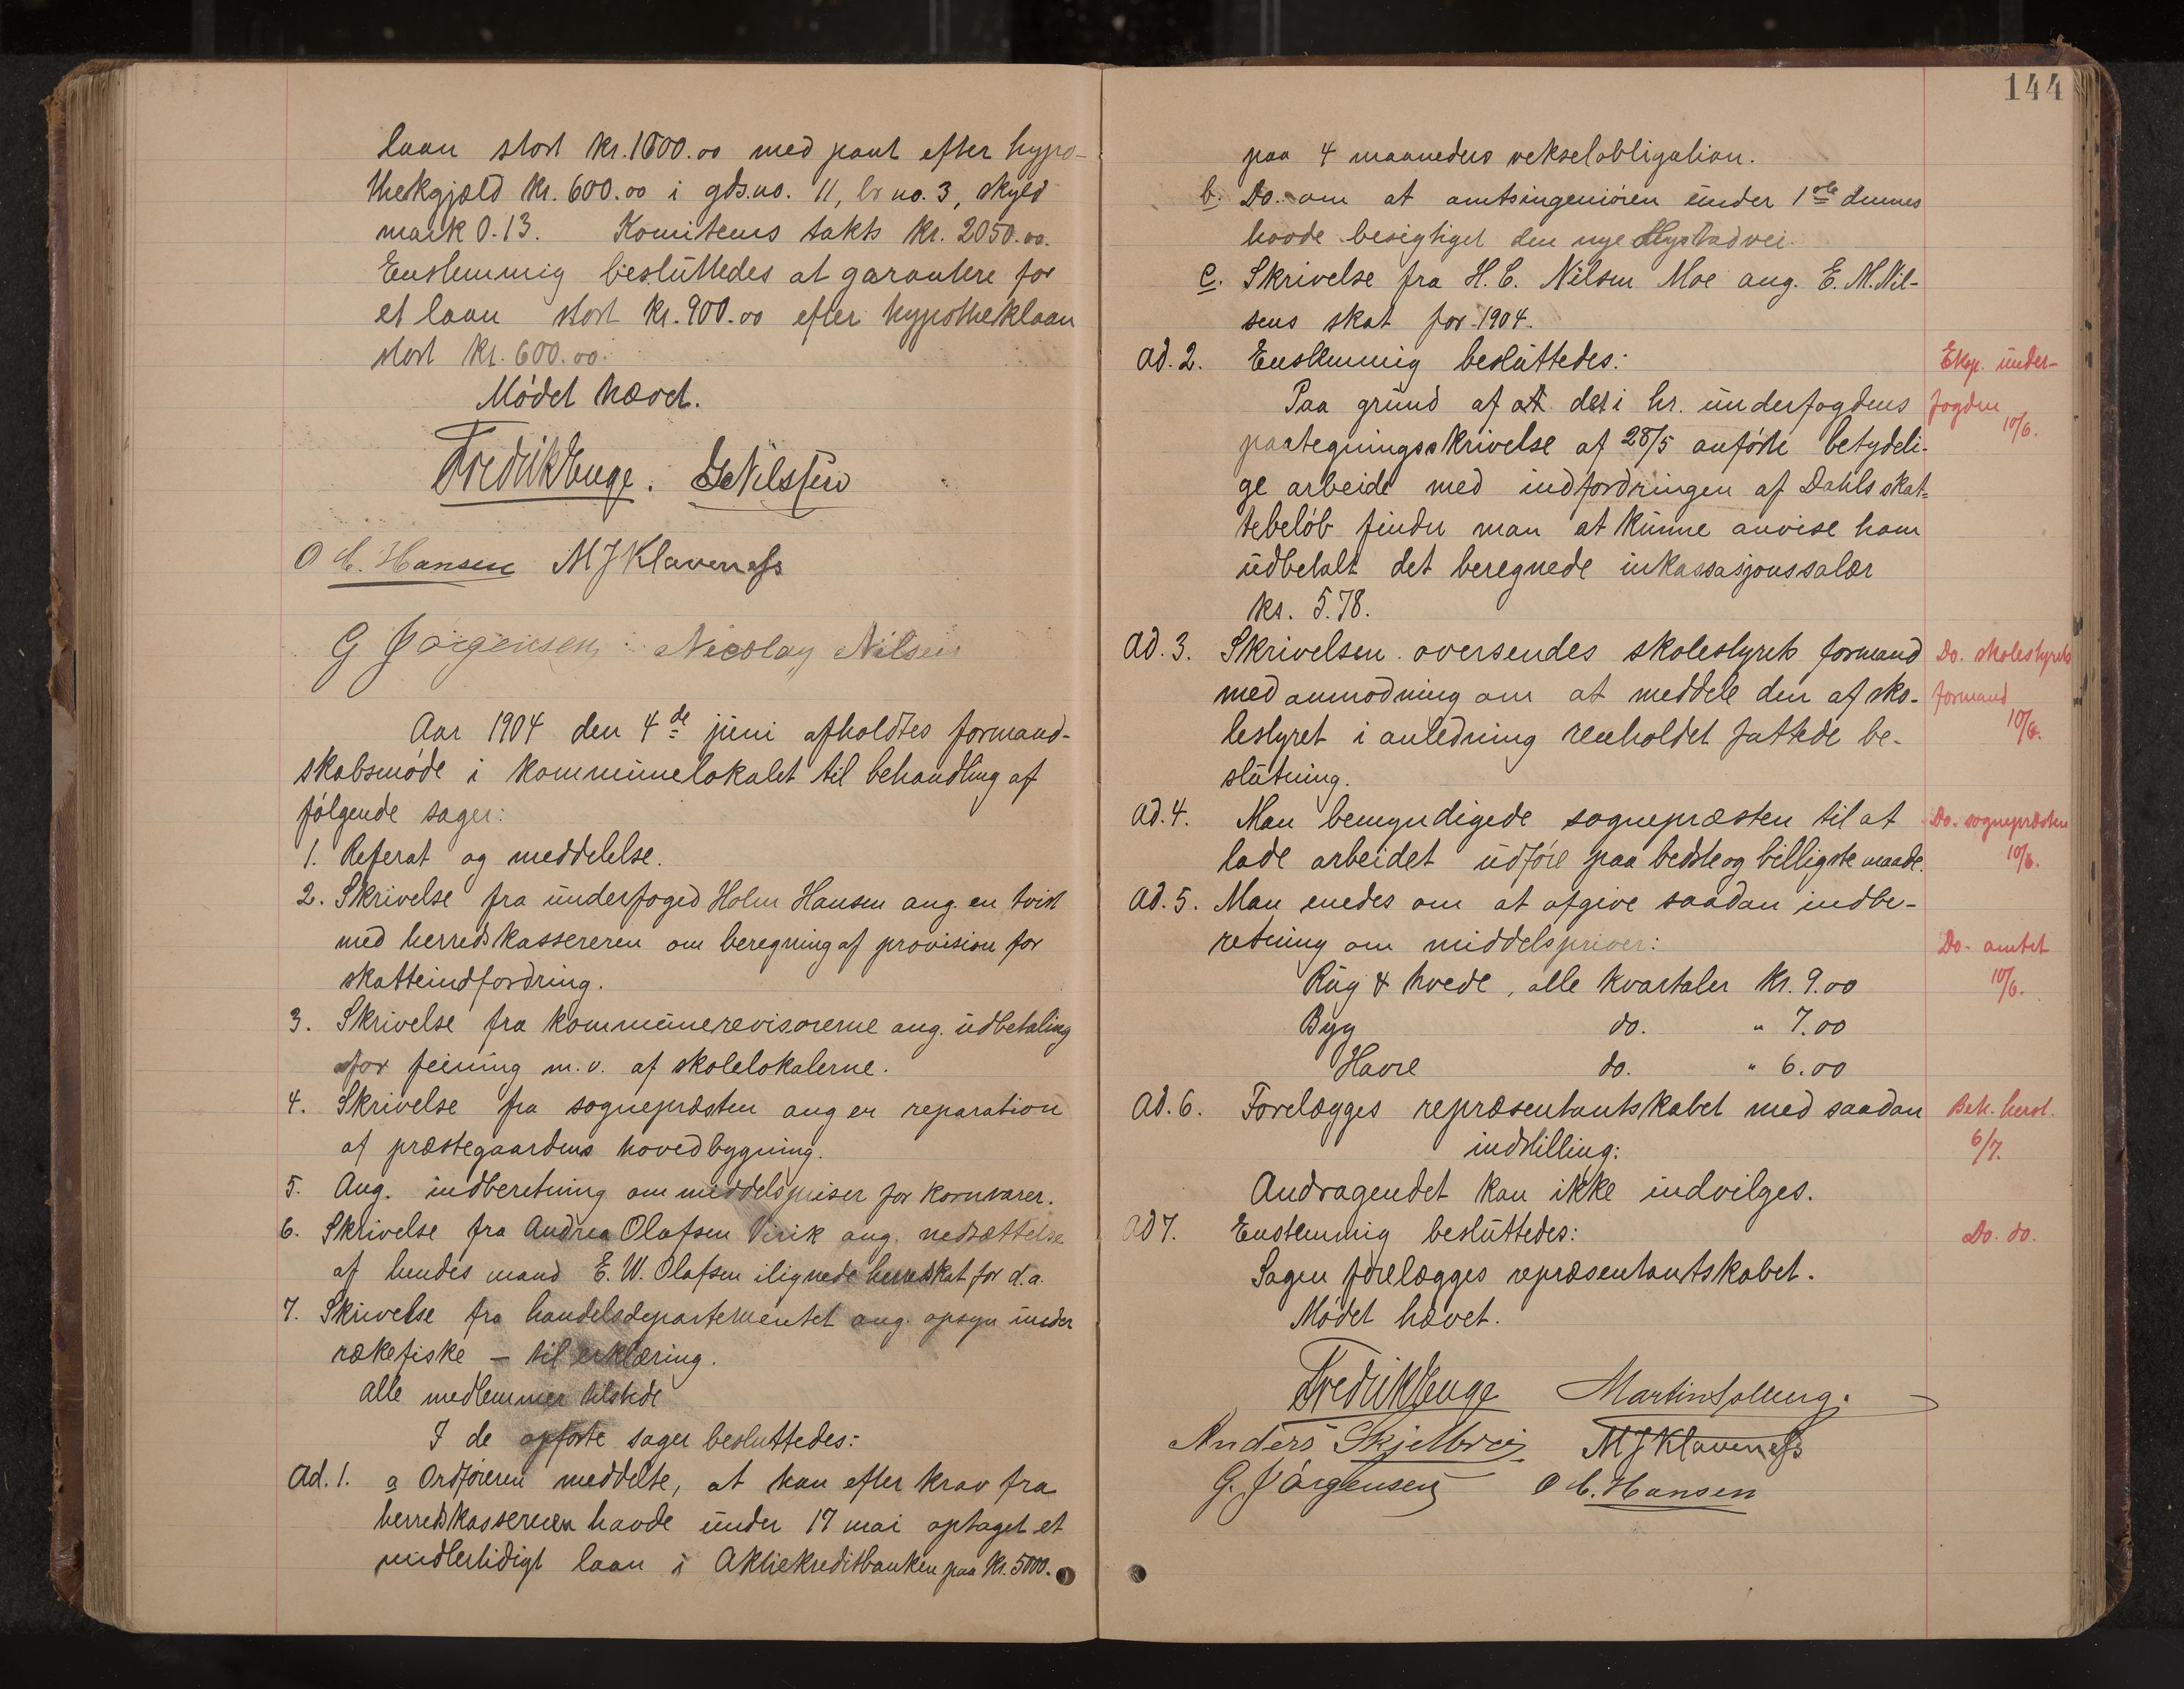 laan stort kr. 1600.00 med pant efter hypo-
thekgjæld kr. 600.00 i gds.no. 11, br no. 3, skyld
mark 0.13. Komiteens takts kr. 2050.00.
Enstemmig besluttedes at garantere for
et laan stort kr. 900.00 efter hypotheklaan
stort kr. 600.00.
Mödet hævet.
Fredrik Enge. 
O C. Hansen M J Klaveness
G Jörgensen Nicolay Nilsen
Aar 1904 den 4de juni afholdtes formand-
skabsmöde i kommunelokalet til behandling af
følgende sager:
1. Referat og meddelelse.
2. Skrivelse fra underfoged Holm Hansen ang. en tvist
med herredskassereren om beregning af provision for
skatteindfordring.
3. Skrivelse fra kommunerevisorerne ang. udbetaling
for feining m.v. af skolelokalerne.
4. Skrivelse fra sognepræsten ang en reparation
af præstegaardens hovedbygning.
5. Ang. indberetning om middelspriser for kornvarer.
6. Skrivelse fra Andrea Olafsen Virik ang. nedsættelse
af hendes mand E. W. Olafsen ilignede herredskat for d.a.
7. Skrivelse fra handelsdepartementet ang. opsyn under
rækefiske – til erklæring.
Alle medlemmer tilstede
I de opförte sager besluttedes:
Ad. 1. a Ordføreren meddelte, at han efter krav fra
herredskassereren havde under 17 mai optaget et
midlertidigt laan i Aktiekreditbanken paa kr. 5000.
144
paa 4 maaneders vekselobligation.
b. Do. om at amtsingeniören under 1ste dennes
havde besigtiget den nye vei.
c. Skrivelse fra H. C. Nilsen Moe ang. E. M. Nil-
sens skat for 1904.
ad. 2. Enstemmig besluttedes:
Eksp. under-
Paa grund af at det i hr. underfogdens
fogden 10/6.
paategningsskrivelse af 28/5 anförte betydeli-
ge arbeide med indfordringen af Dahls skat-
tebelöb finder man at kunne anvise ham
udbetalt det beregnede inkassasjonssalær
kr. 5.78.
ad. 3. Skrivelsen oversendes skolestyrets formand
Do. skolestyrets
med anmodning om at meddele den af sko-
formand
lestyret i anledning renholdet fattede be-
10/6.
slutning.
ad. 4. Man bemyndigede sognepræsten til at
Do. sognepræsten
lade arbeidet udføre paa bedste og billigste maade.
10/6.
ad. 5. Man enedes om at afgive saadan indbe-
retning om middelspriser:
Do. amtet
Rug & hvede, alle kvartaler kr. 9.00
10/6.
Byg do. " 7.00
Havre do. " 6.00
ad. 6. Forelægges repræsentantskabet med saadan
Beh. herst.
indstilling:
6/7.
Andragendet kan ikke indvilges.
ad 7. Enstemmig besluttedes:
Do. do.
Sagen forelægges repræsentantskabet.
Mödet hævet.
Fredrik Enge Martin Solberg.
Anders Skjelbrei M J Klaveness
G. Jörgensen O C. Hansen